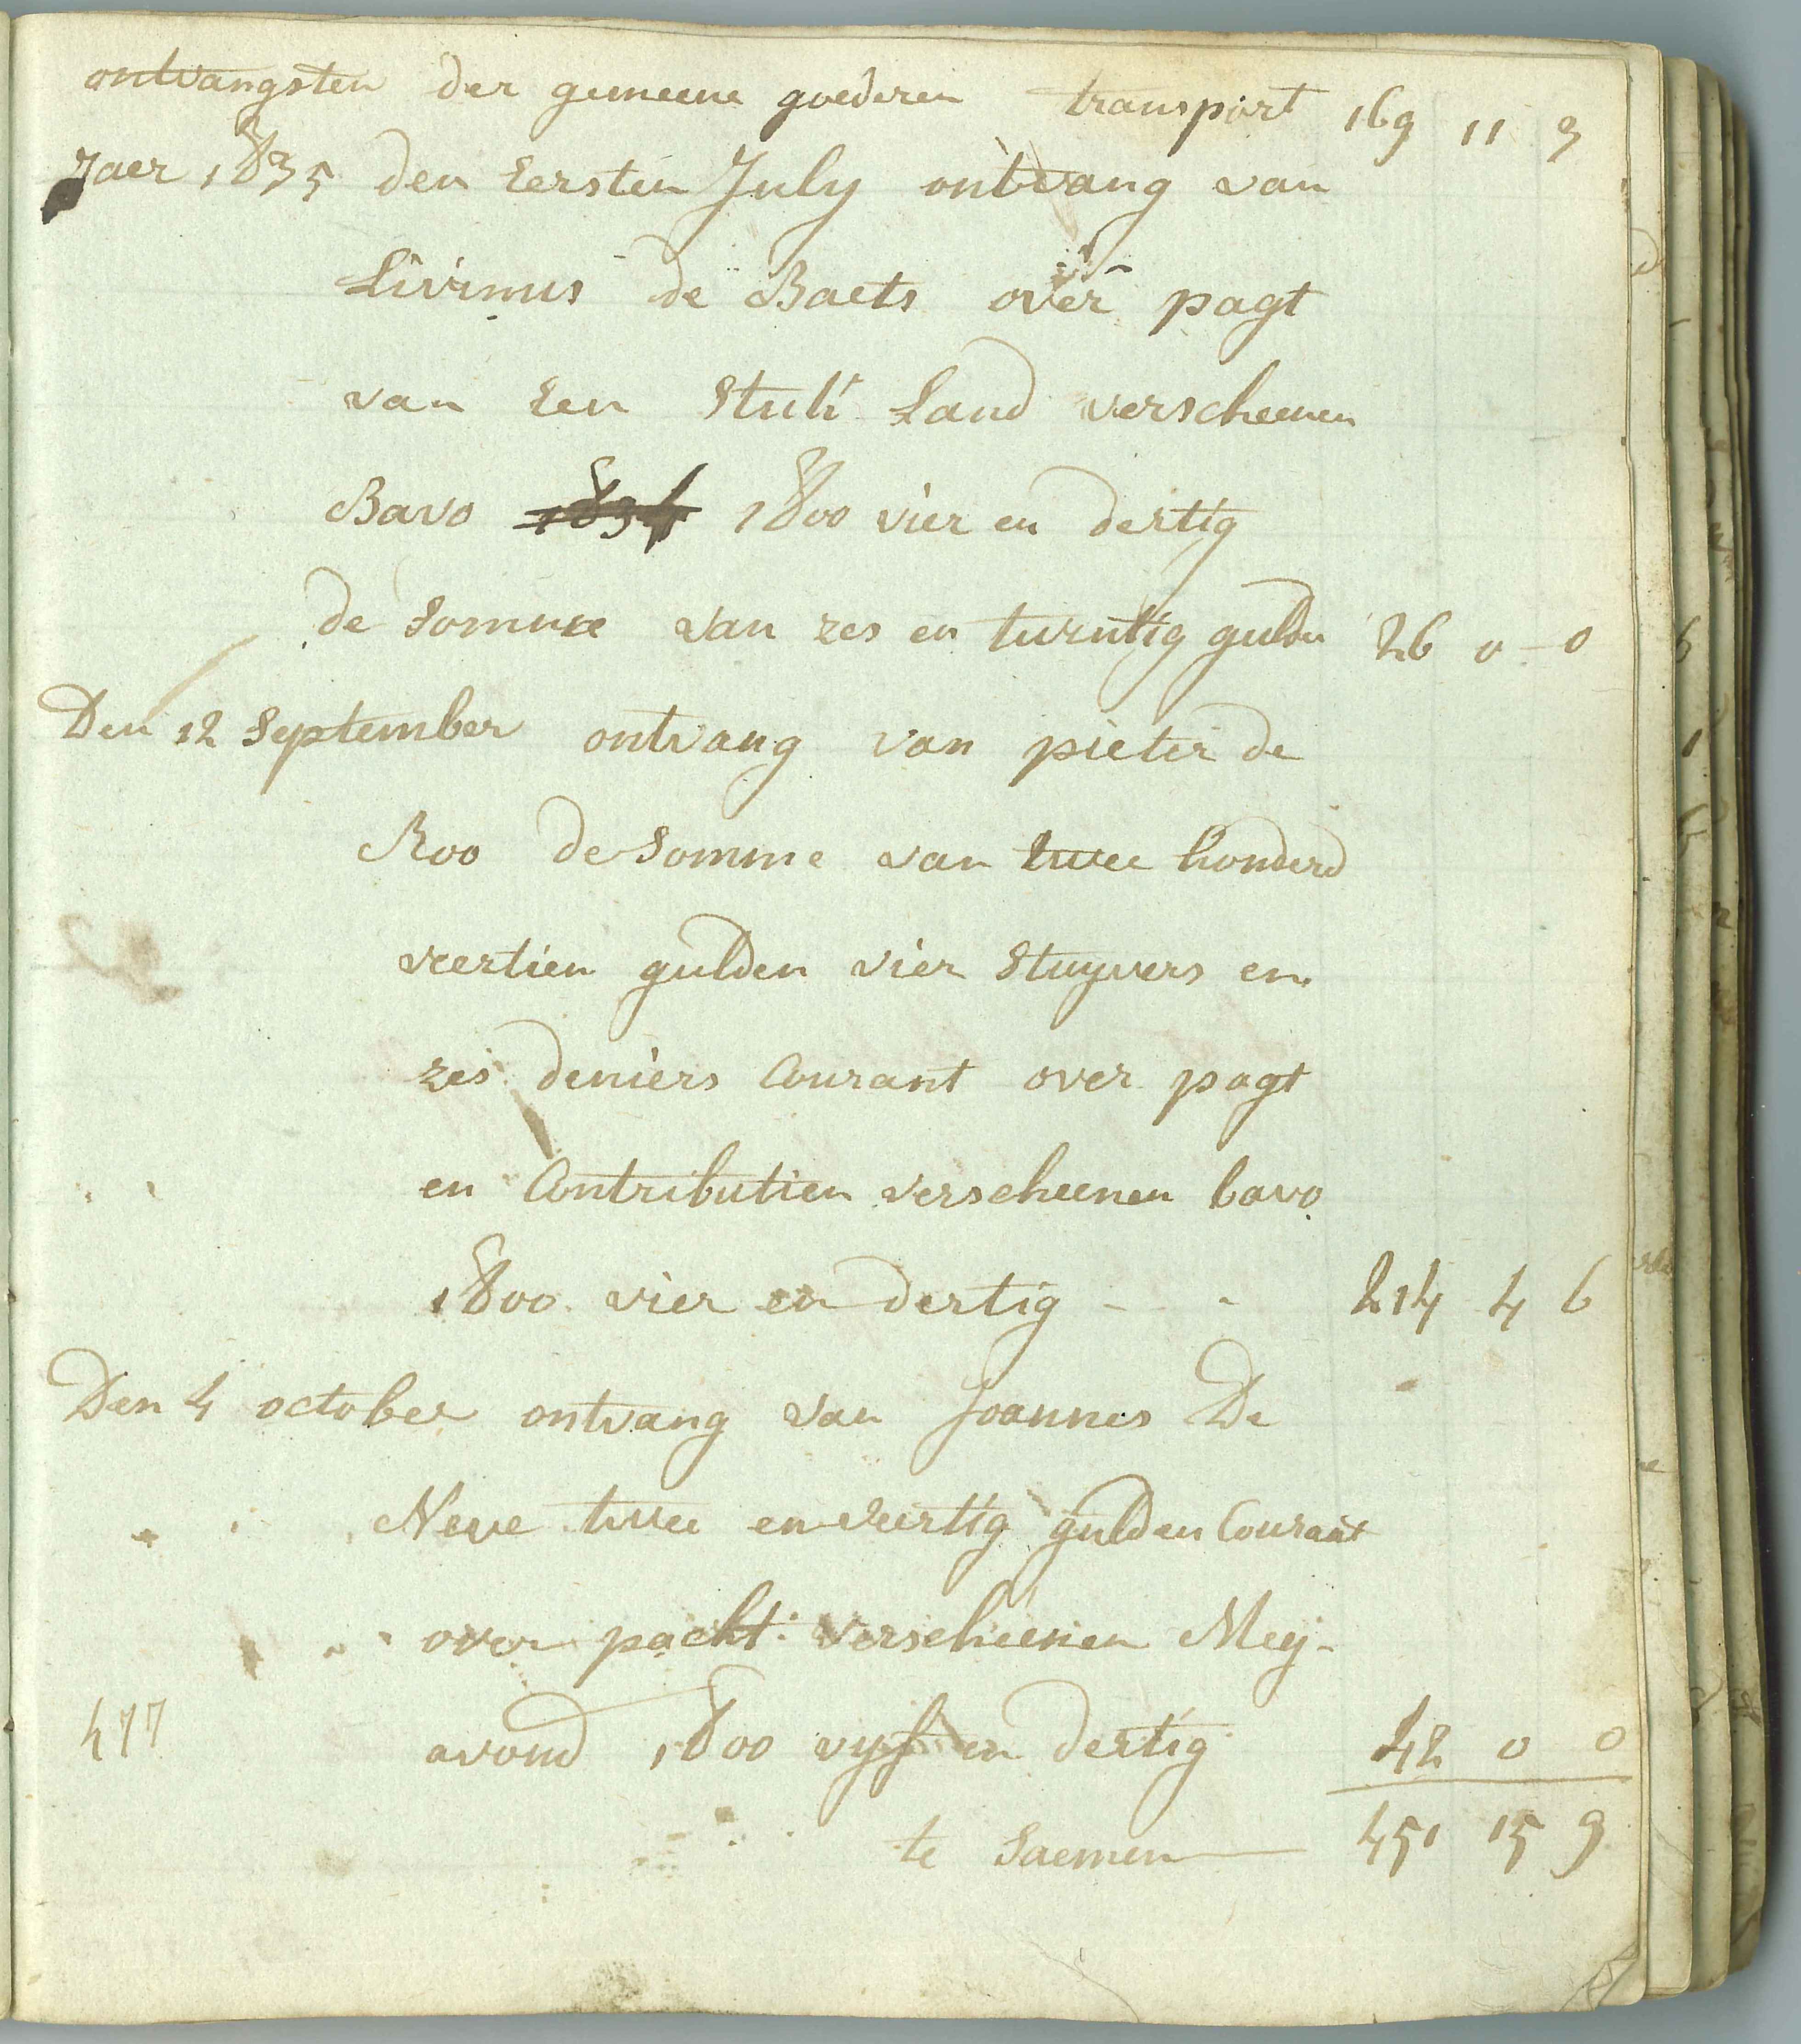 ontvangsten der gemeene goederen transport 169 11 3
Jaer 1835 den Eersten July ontvang van
Livinus de Baets over pagt
van Een Stuk Land verscheenen
Bavo 1834 1800 vier en dertig
de Somme van zes en twentig gulden 26 0 - 0
Den 12 September ontvang van pieter de
Roo de Somme van twee honderd
veertien gulden vier Stuyvers en
zes deniers Courant over pagt
en Contributien verscheenen bavo
1800 vier en dertig - - 214 4 6
Den 4 october ontvang van Joannes De
Neve twee en veertig gulden Courant
over pacht verscheenen Mey-
477 avond 1800 vyf en dertig 42 0 0
te Saemen 451 15 9